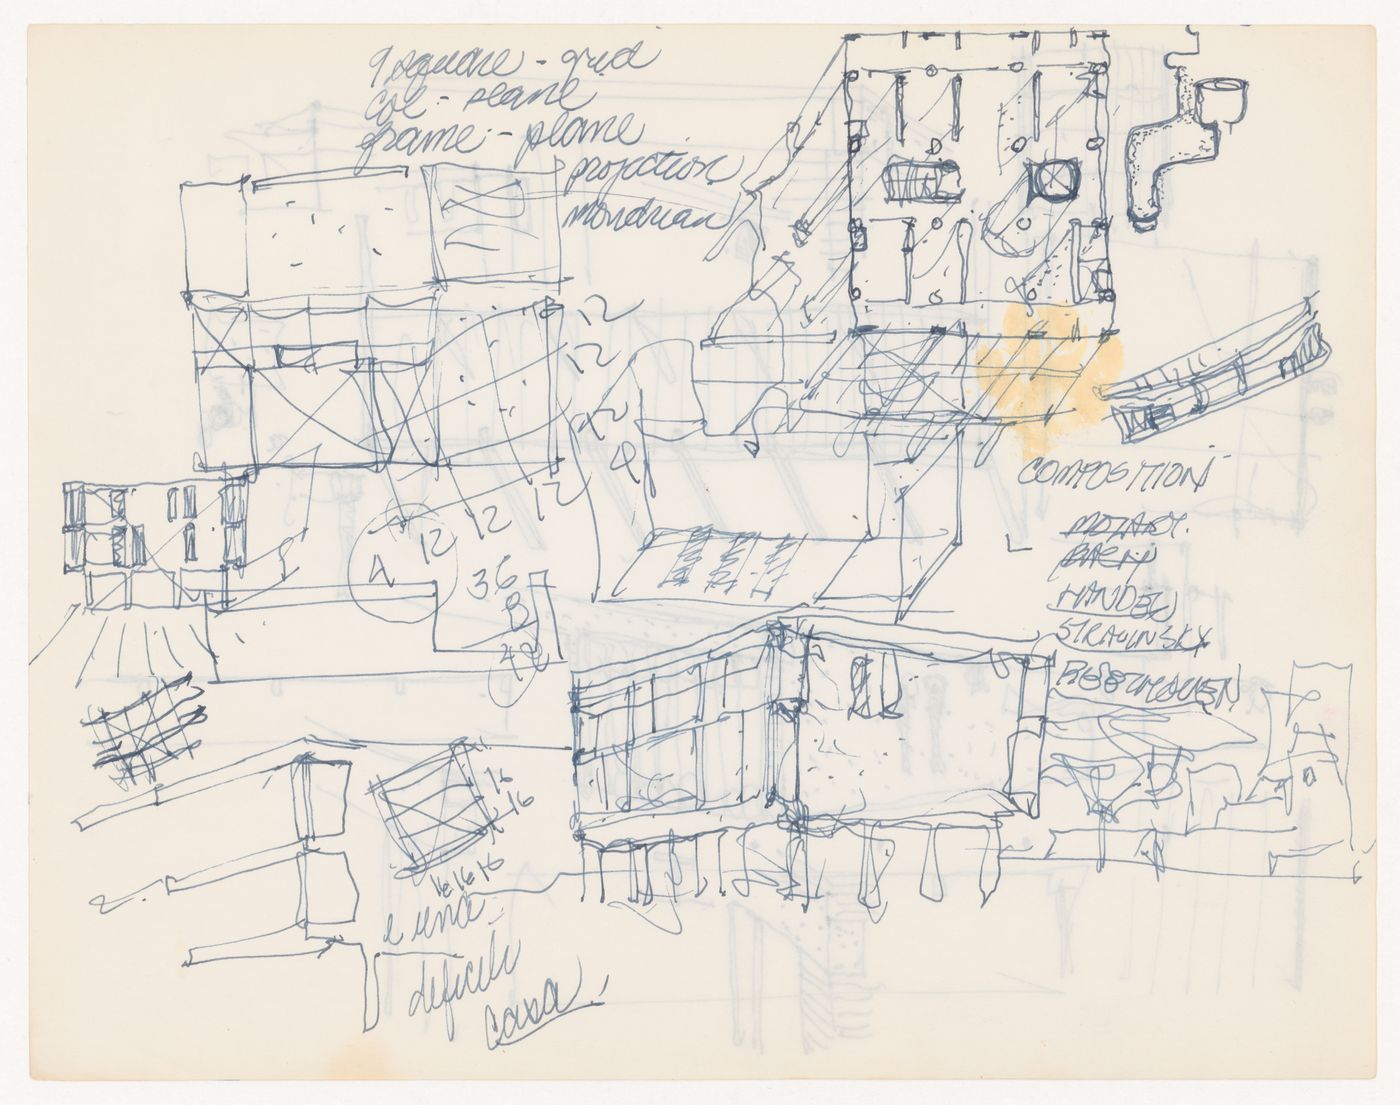 9 square - grid
col - plane
frame - plane
projection
mondrian
12
12
12
9
12
12
12
A
36
B
48
COMPOSITION
MOZART.
BACH
HANDEL
STRAVINSKY
BEETHOVEN
16
16
16 16 16
e una
deficile
casa!